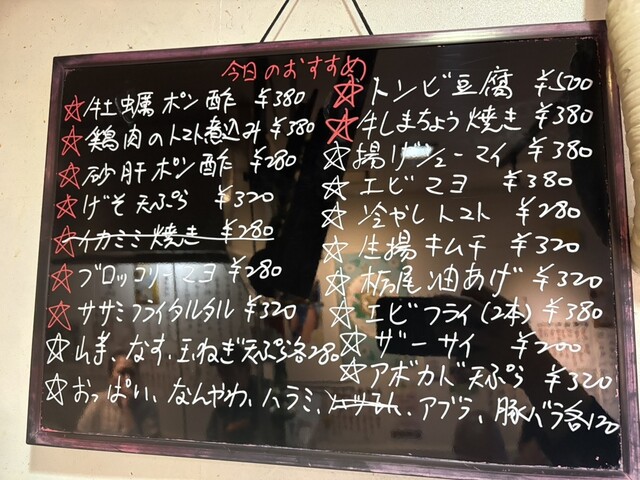 今日のおすすめ
☆牡蠣ポン酢 ¥380
☆鶏肉のトマト煮込み ¥380
☆砂肝ポン酢 ¥280
☆げそ天ぷら ¥320
☆イカミミ焼き ¥280
☆ブロッコリーマヨ ¥280
☆ササミフライタルタル ¥320
☆山芋、なす、玉ねぎ天ぷら各280
☆おっぱい、なんやわ、ハラミ、
アブラ、豚バラ各120
☆トンビ豆腐 ¥500
☆牛しまちょう焼き ¥380
☆揚げシューマイ ¥380
☆エビマヨ ¥380
☆冷やしトマト ¥280
☆生揚キムチ ¥320
☆栃尾油あげ ¥320
☆エビフライ(2本) ¥380
☆ザーサイ ¥200
☆アボカド天ぷら ¥320